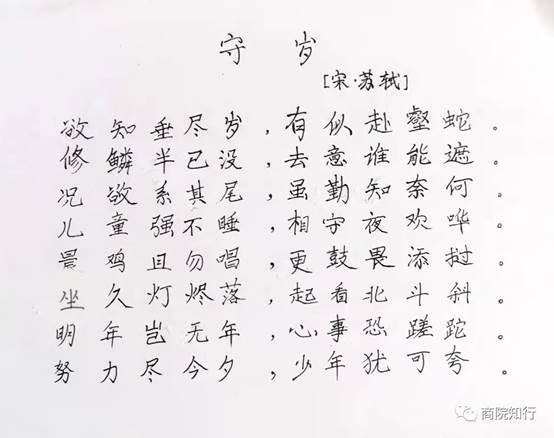 守 岁
[宋·苏轼]
欲知垂尽岁，有似赴壑蛇。
修鳞半已没，去意谁能遮。
况欲系其尾，虽勤知奈何。
儿童强不睡，相守夜欢哗。
晨鸡且勿唱，更鼓畏添挝。
坐久灯烬落，起看北斗斜。
明年岂无年，心事恐蹉跎。
努力尽今夕，少年犹可夸。
商院知行